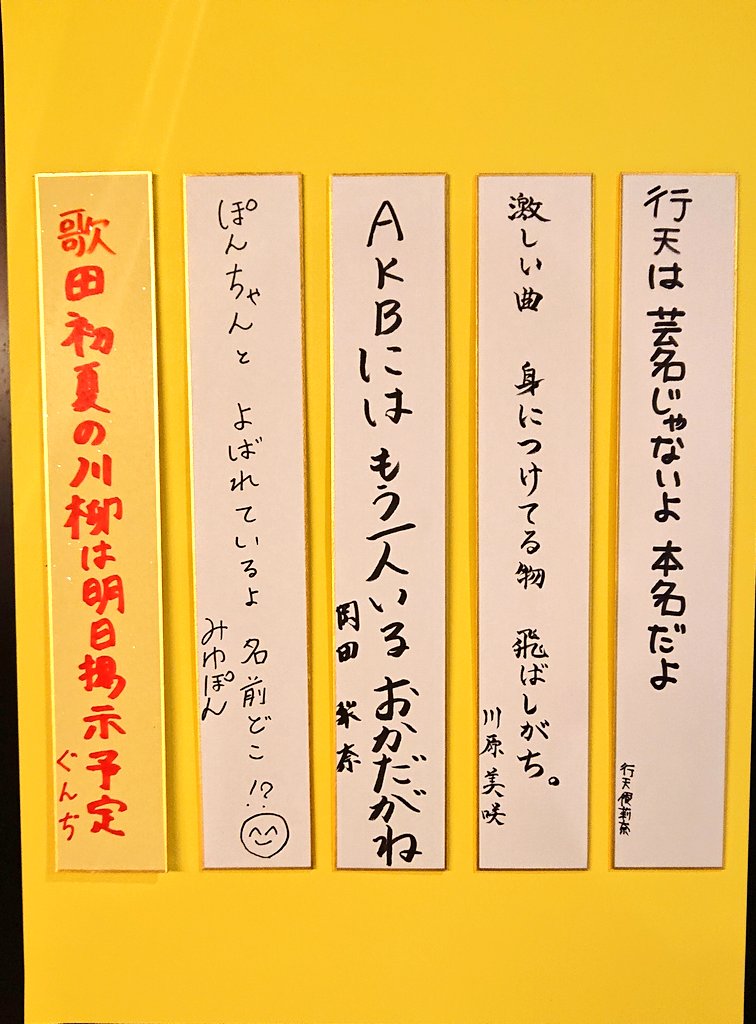 行天は 芸名じゃないよ 本名だよ
行天優莉奈
激しい曲 身につけてる物 飛ばしがち。
川原美咲
AKBには もう一人いる おかだがね
岡田梨奈
ぽんちゃんと よばれているよ 名前どこ!?
みゆぽん
歌田初夏の川柳は明日掲示予定
ぐんぢ